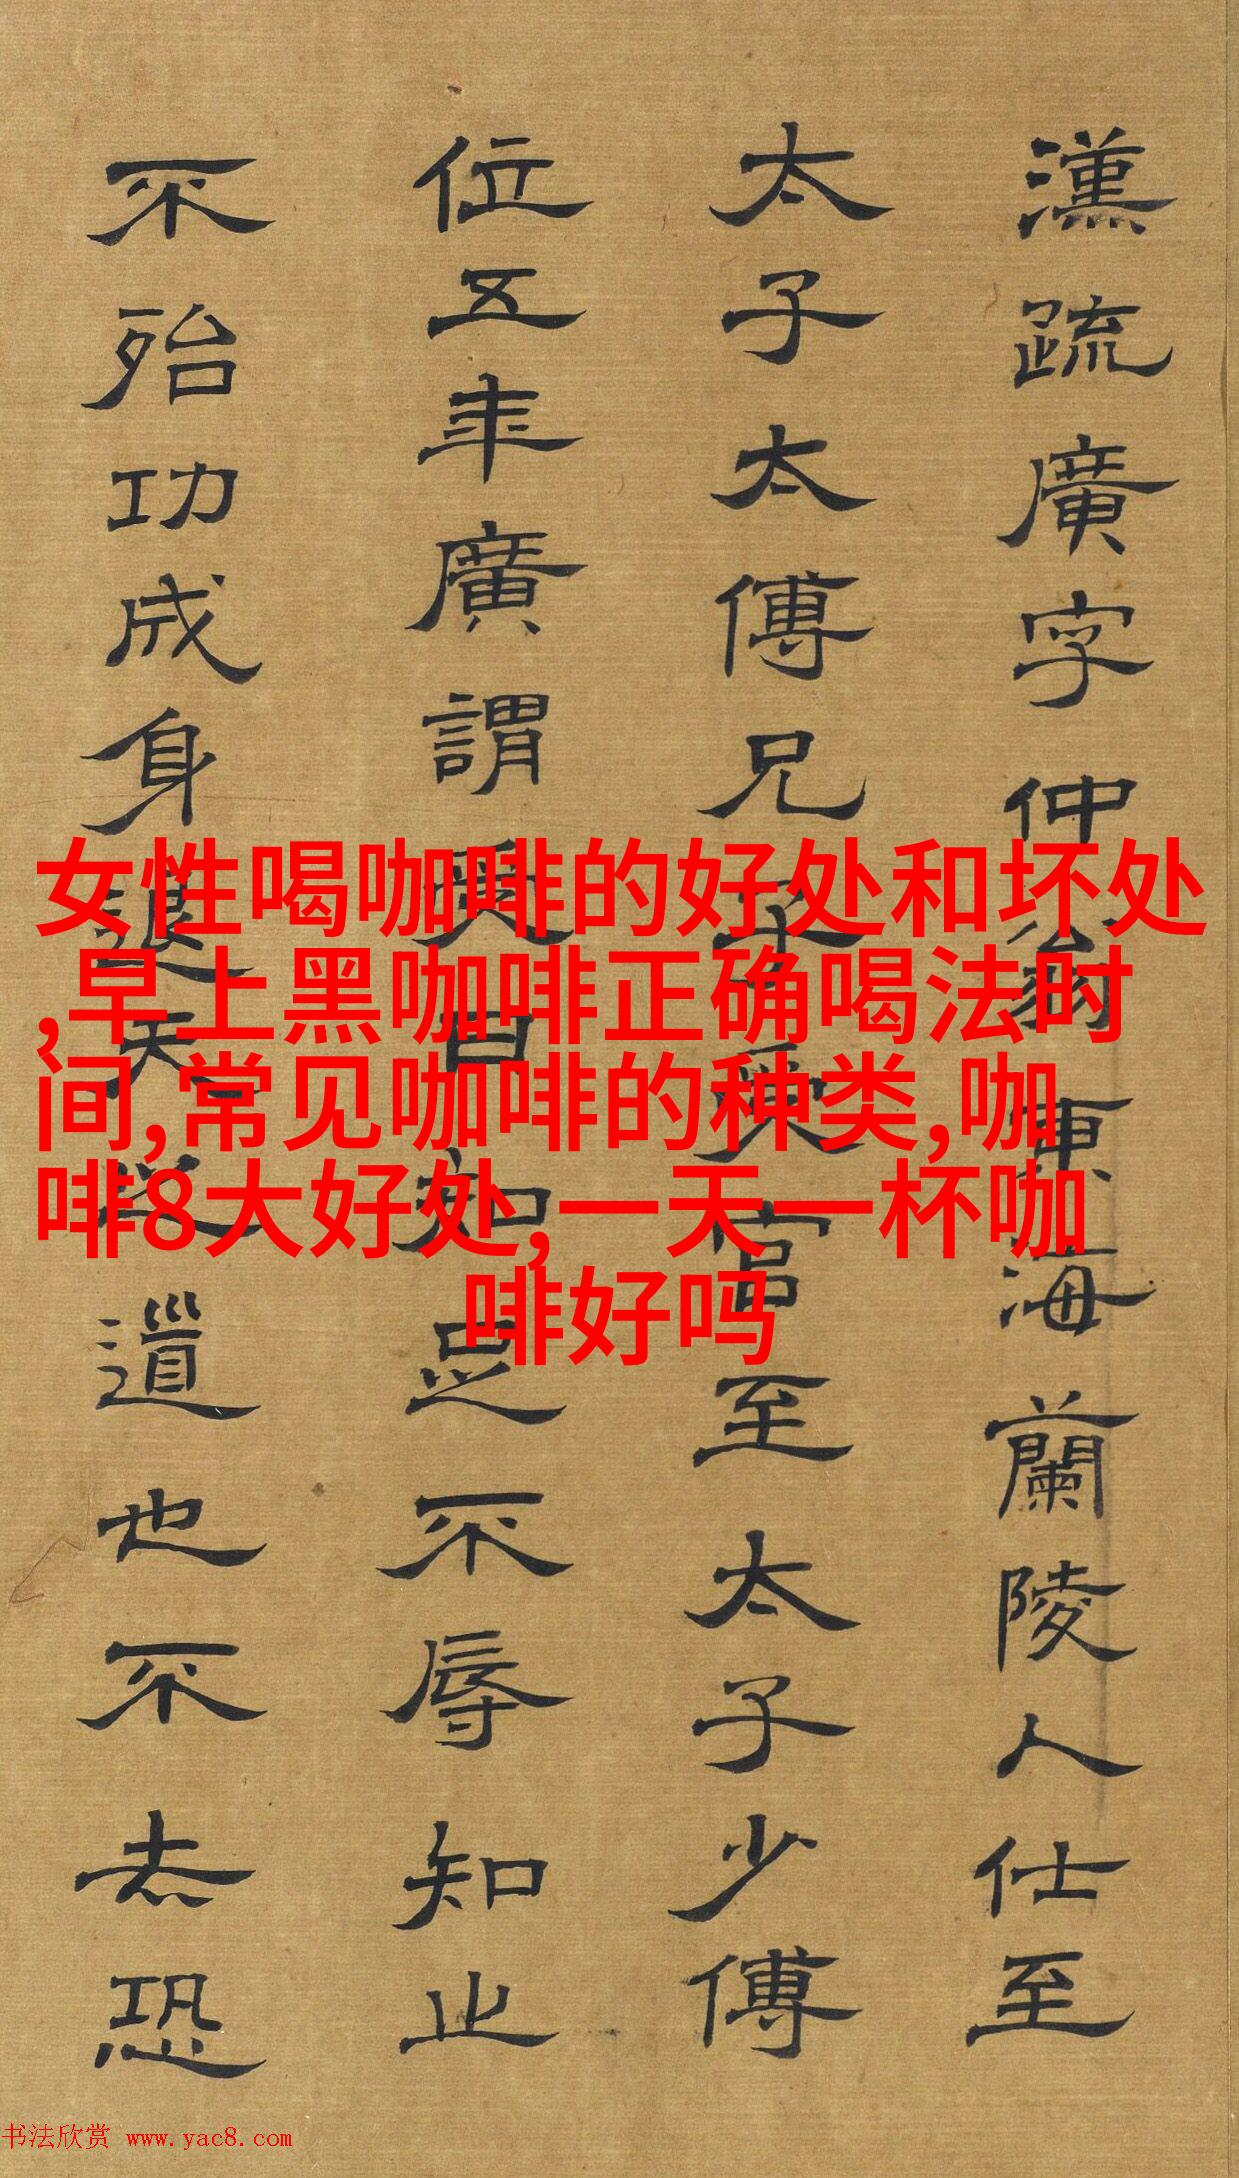 漢疏廣字仲翁東海蘭陵人仕至
太子太傅兄子受官至太子少傅
位五年廣謂受曰知足不辱知止
不殆功成身退天之道也不去恐
女性喝咖啡的好处和坏处
,早上黑咖啡正确喝法时
间,常见咖啡的种类,咖
啡8大好处,一天一杯咖
啡好吗
书法欣赏 www.yac8.com